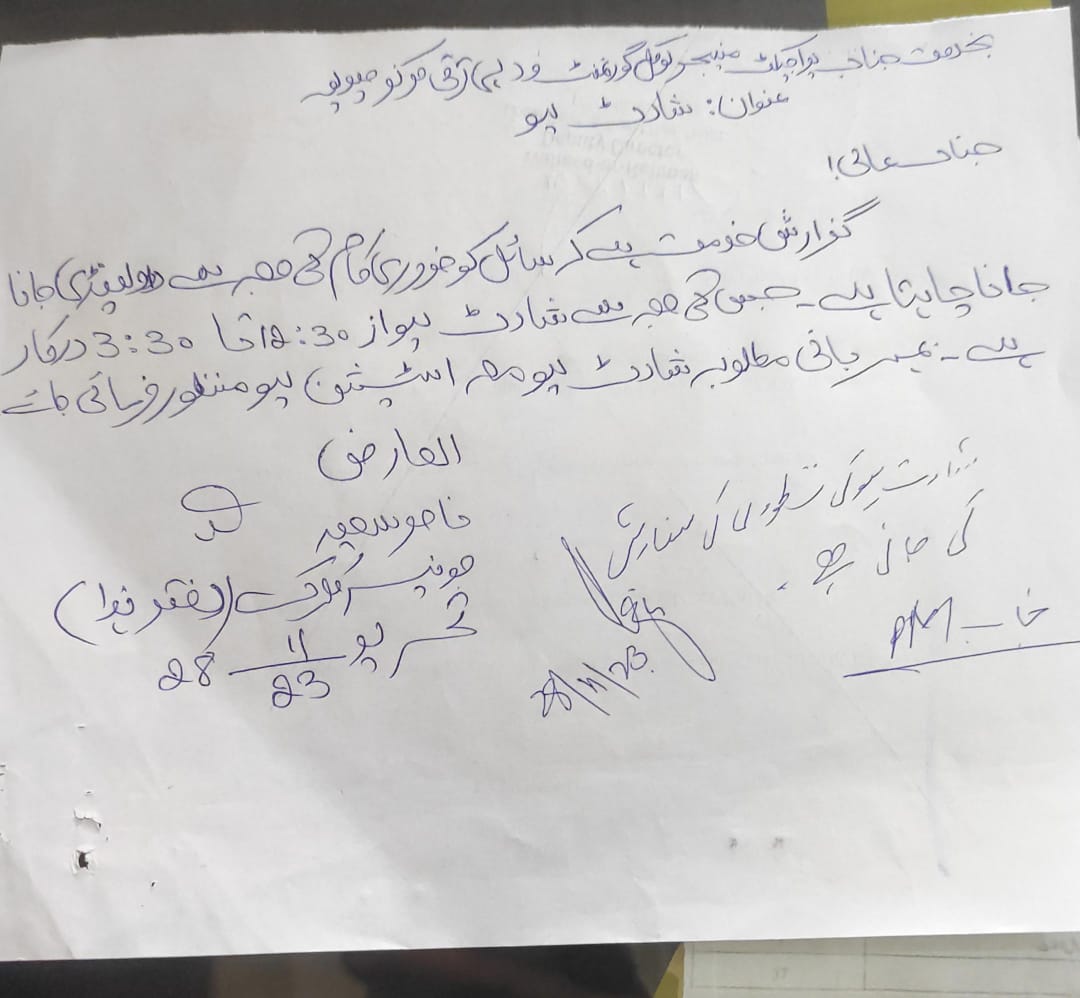 بخدمت جناب پراجیکٹ منیجر لوکل گورنمنٹ و دیہی ترقی
عنوان: شارٹ لیو
جناب عالی!
گزارش خدمت ہے کہ سائل کو ضروری کام کی وجہ سے راولپنڈی جانا
جانا چاہتا ہے۔ جس کی وجہ سے شارٹ لیو از 12:30 تا 3:30 درکار
ہے۔ بمہربانی مطلوبہ شارٹ لیو معہ اسٹیشن لیو منظور فرمائی جائے
العارض
جونیئر کلرک (دفتر ہذا)
تحریر 28 11/23
شارٹ لیو کی منظوری کی سفارش
کی جاتی ہے۔
28/11/23
جناب PM